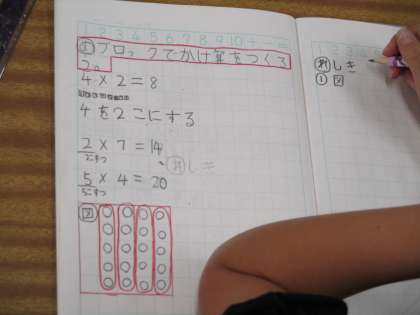 1 2 3 4 5 6 7 8 9 10
め ブロックでかけ算をつくろう。
4×2=8
4を2こにする
2×7=14
2こずつ
しき
5×4=20
5こずつ
図
1 2 3
しき
① 図